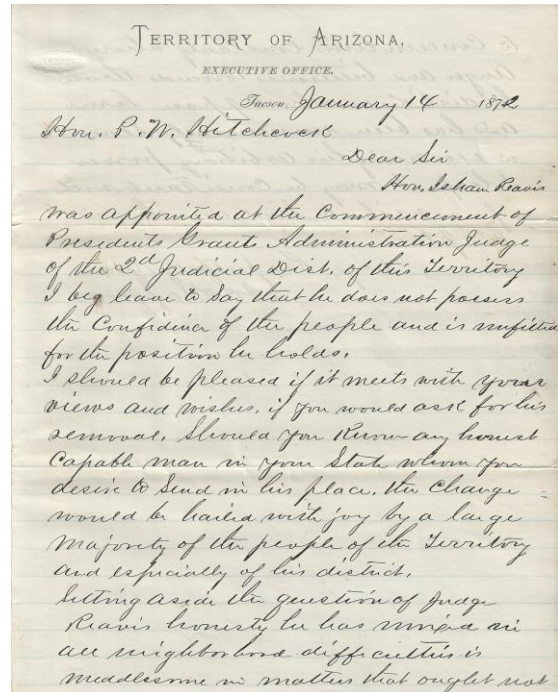 TERRITORY OF ARIZONA,
EXECUTIVE OFFICE.
Tucson, January 14 1872
Hon. P. W. Hitchcock
Dear Sir
Hon. Isham Reavis
was appointed at the Commencement of
Presidents Grants Administration Judge
of the 2d Judicial Dist. of this Territory
I beg leave to say that he does not possess
the Confidence of the people and is unfitted
for the position he holds.
I should be pleased if it meets with your
views and wishes, if you would ask for his
removal. Should you Know any honest
Capable man in your State whom you
desire to Send in his place, the Change
would be hailed with joy by a large
Majority of the people of the Territory
and especially of his district.
Setting aside the question of Judge
Reavis honesty he has mixed in
all neighborhood difficulties is
meddlesome in matters that ought not